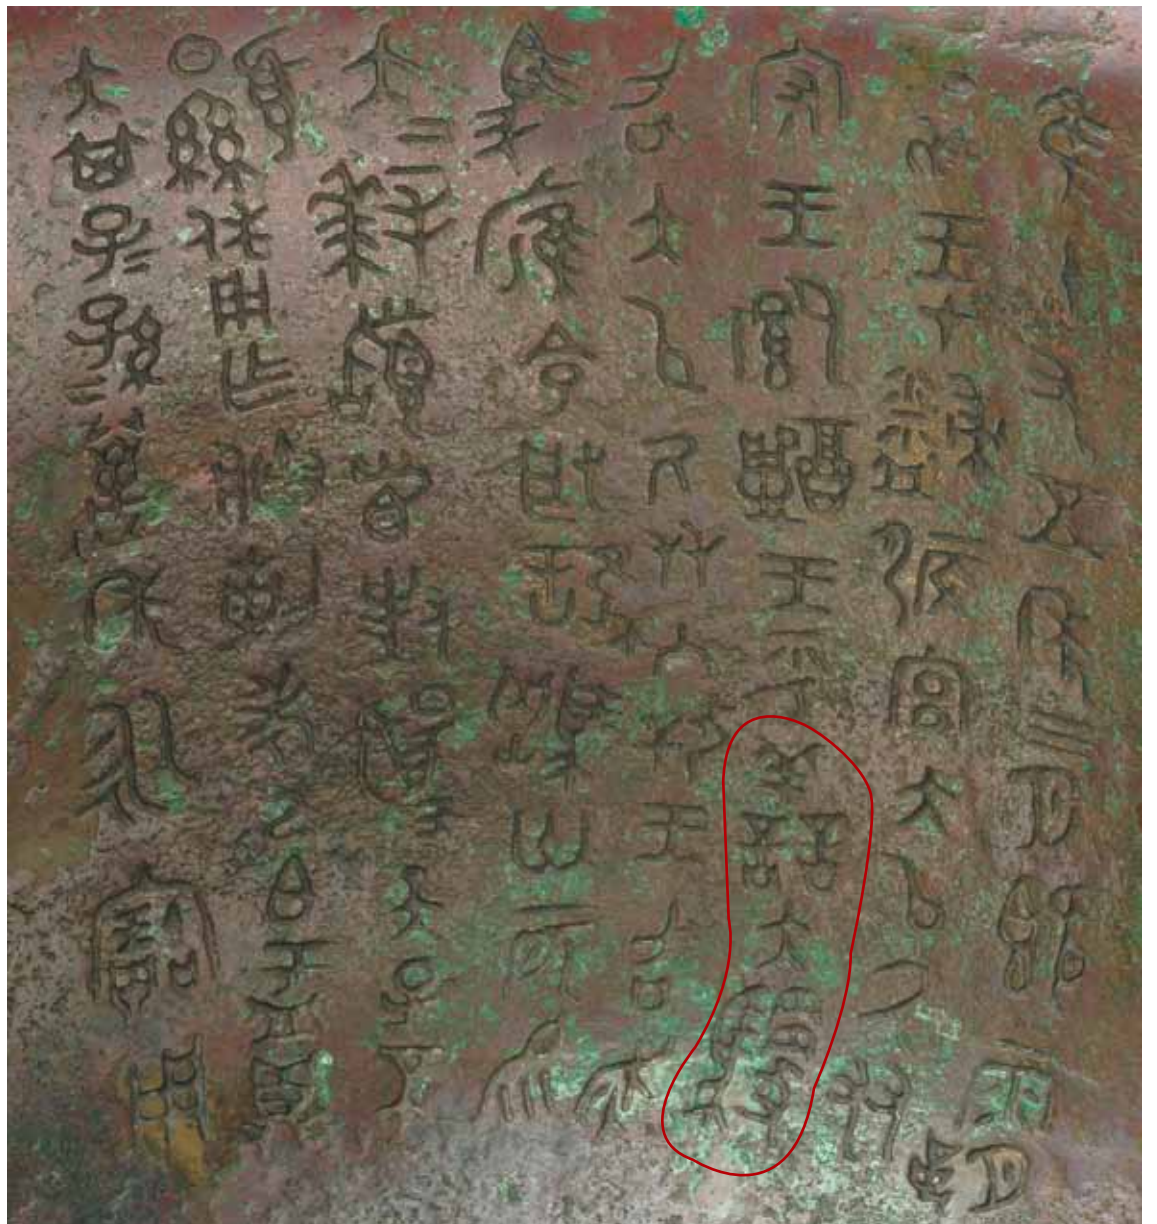 隹十又五年三月既霸丁
亥王才𥎦侲宮大㠯氒友
守王鄉醴王乎善夫騣
召大㠯氒友入攼王召走
馬雁令取誰䮤卅二匹易
大大拜𩒨首對揚天子不
顯休用乍朕剌考己白盂鼎
大其子子孫孫萬年永寶用